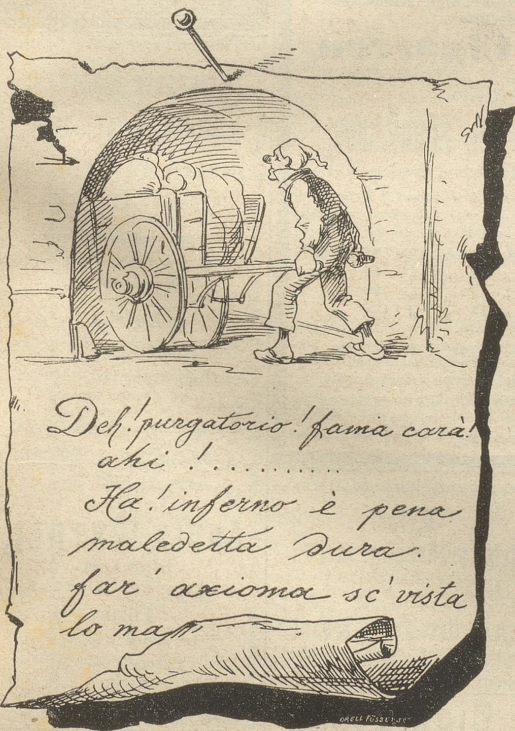 Deh! purgatorio! fama carà!
ahi !..........
Ha! inferno è pena
maledetta dura.
far' axioma sc' vista
lo ma
ORELL FÜSSLI SC